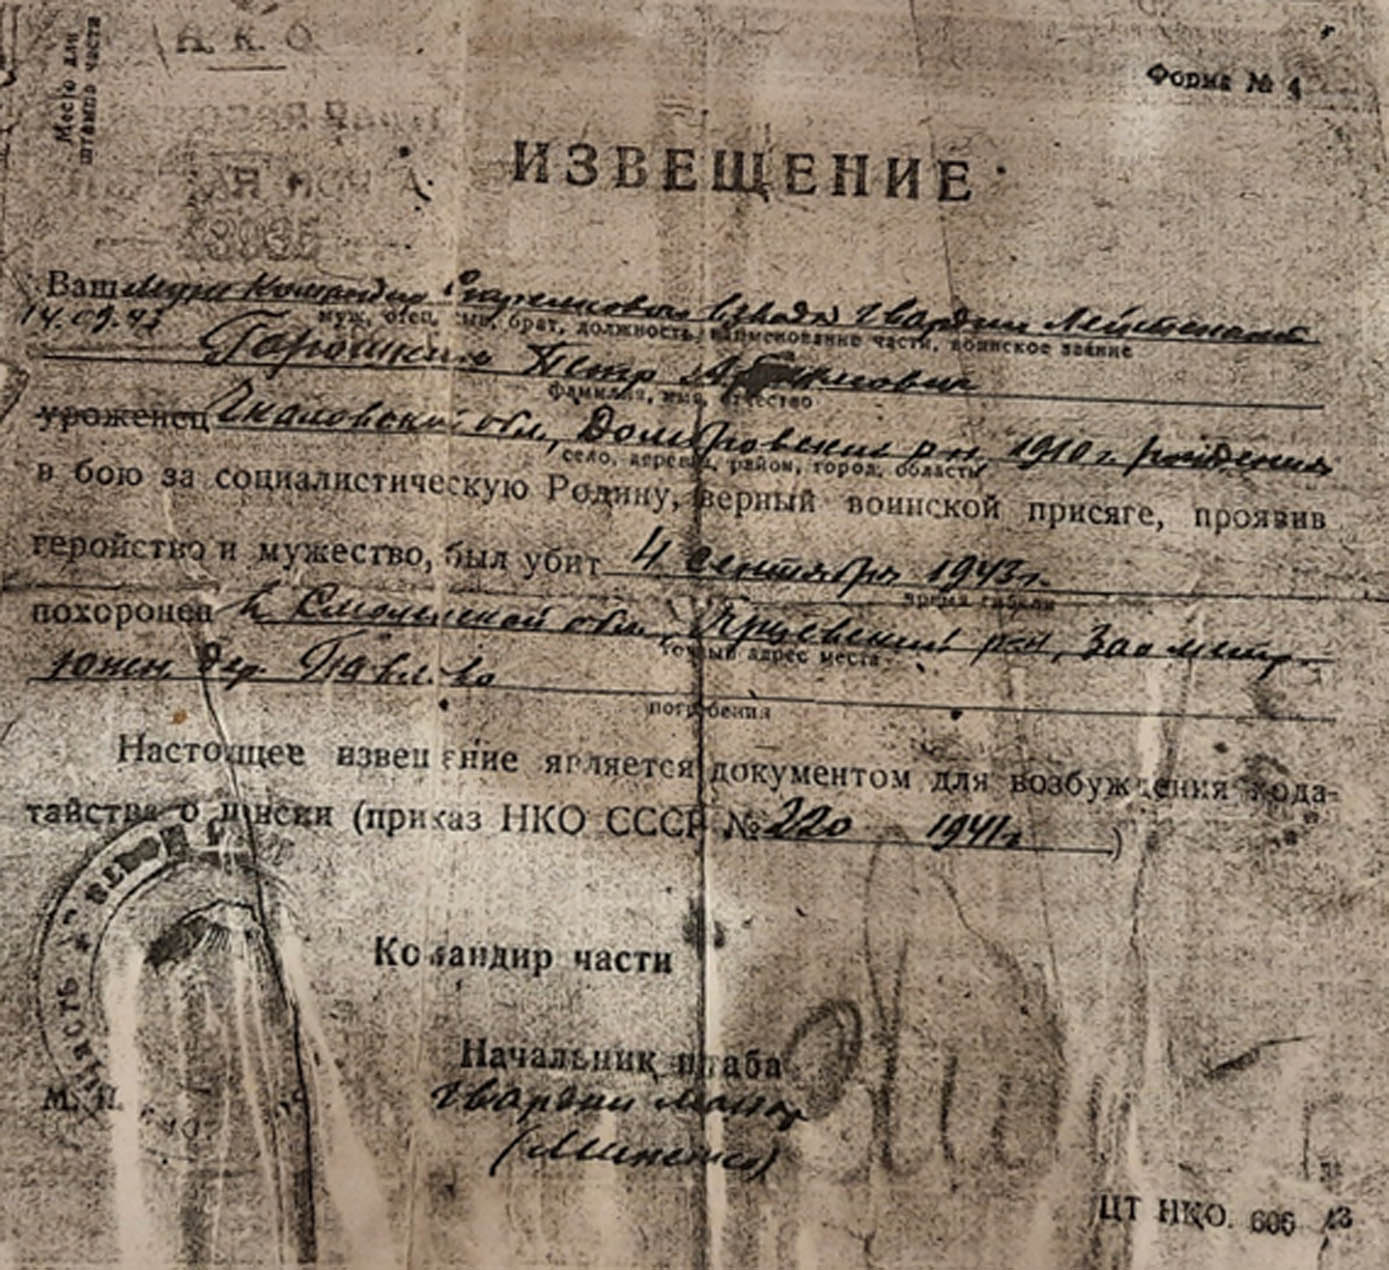 Место для
штампа части
Форма № 4
ИЗВЕЩЕНИЕ
Ваш муж командир взвода гвардии Лейтенант
14.09.43 муж, отец, сын, брат, должность, наименование части, воинское звание
Петр
фамилия, имя, отчество
уроженец Чкаловской обл., Домбровский р-н, 1910 г. рождения
село, деревня, район, город, область
в бою за социалистическую Родину, верный воинской присяге, проявив
геройство и мужество, был убит 4 сентября 1943 г.
время гибели
похоронен в Смоленской обл., Ярцевский р-н,
точный адрес места
южн. дер. Павлово
погребения
Настоящее извещение является документом для возбуждения хода-
тайства о пенсии (приказ НКО СССР № 220 1941 г. )
Командир части
Начальник штаба
гвардии майор
М. П.
ЧАСТЬ
ЦТ НКО. 606